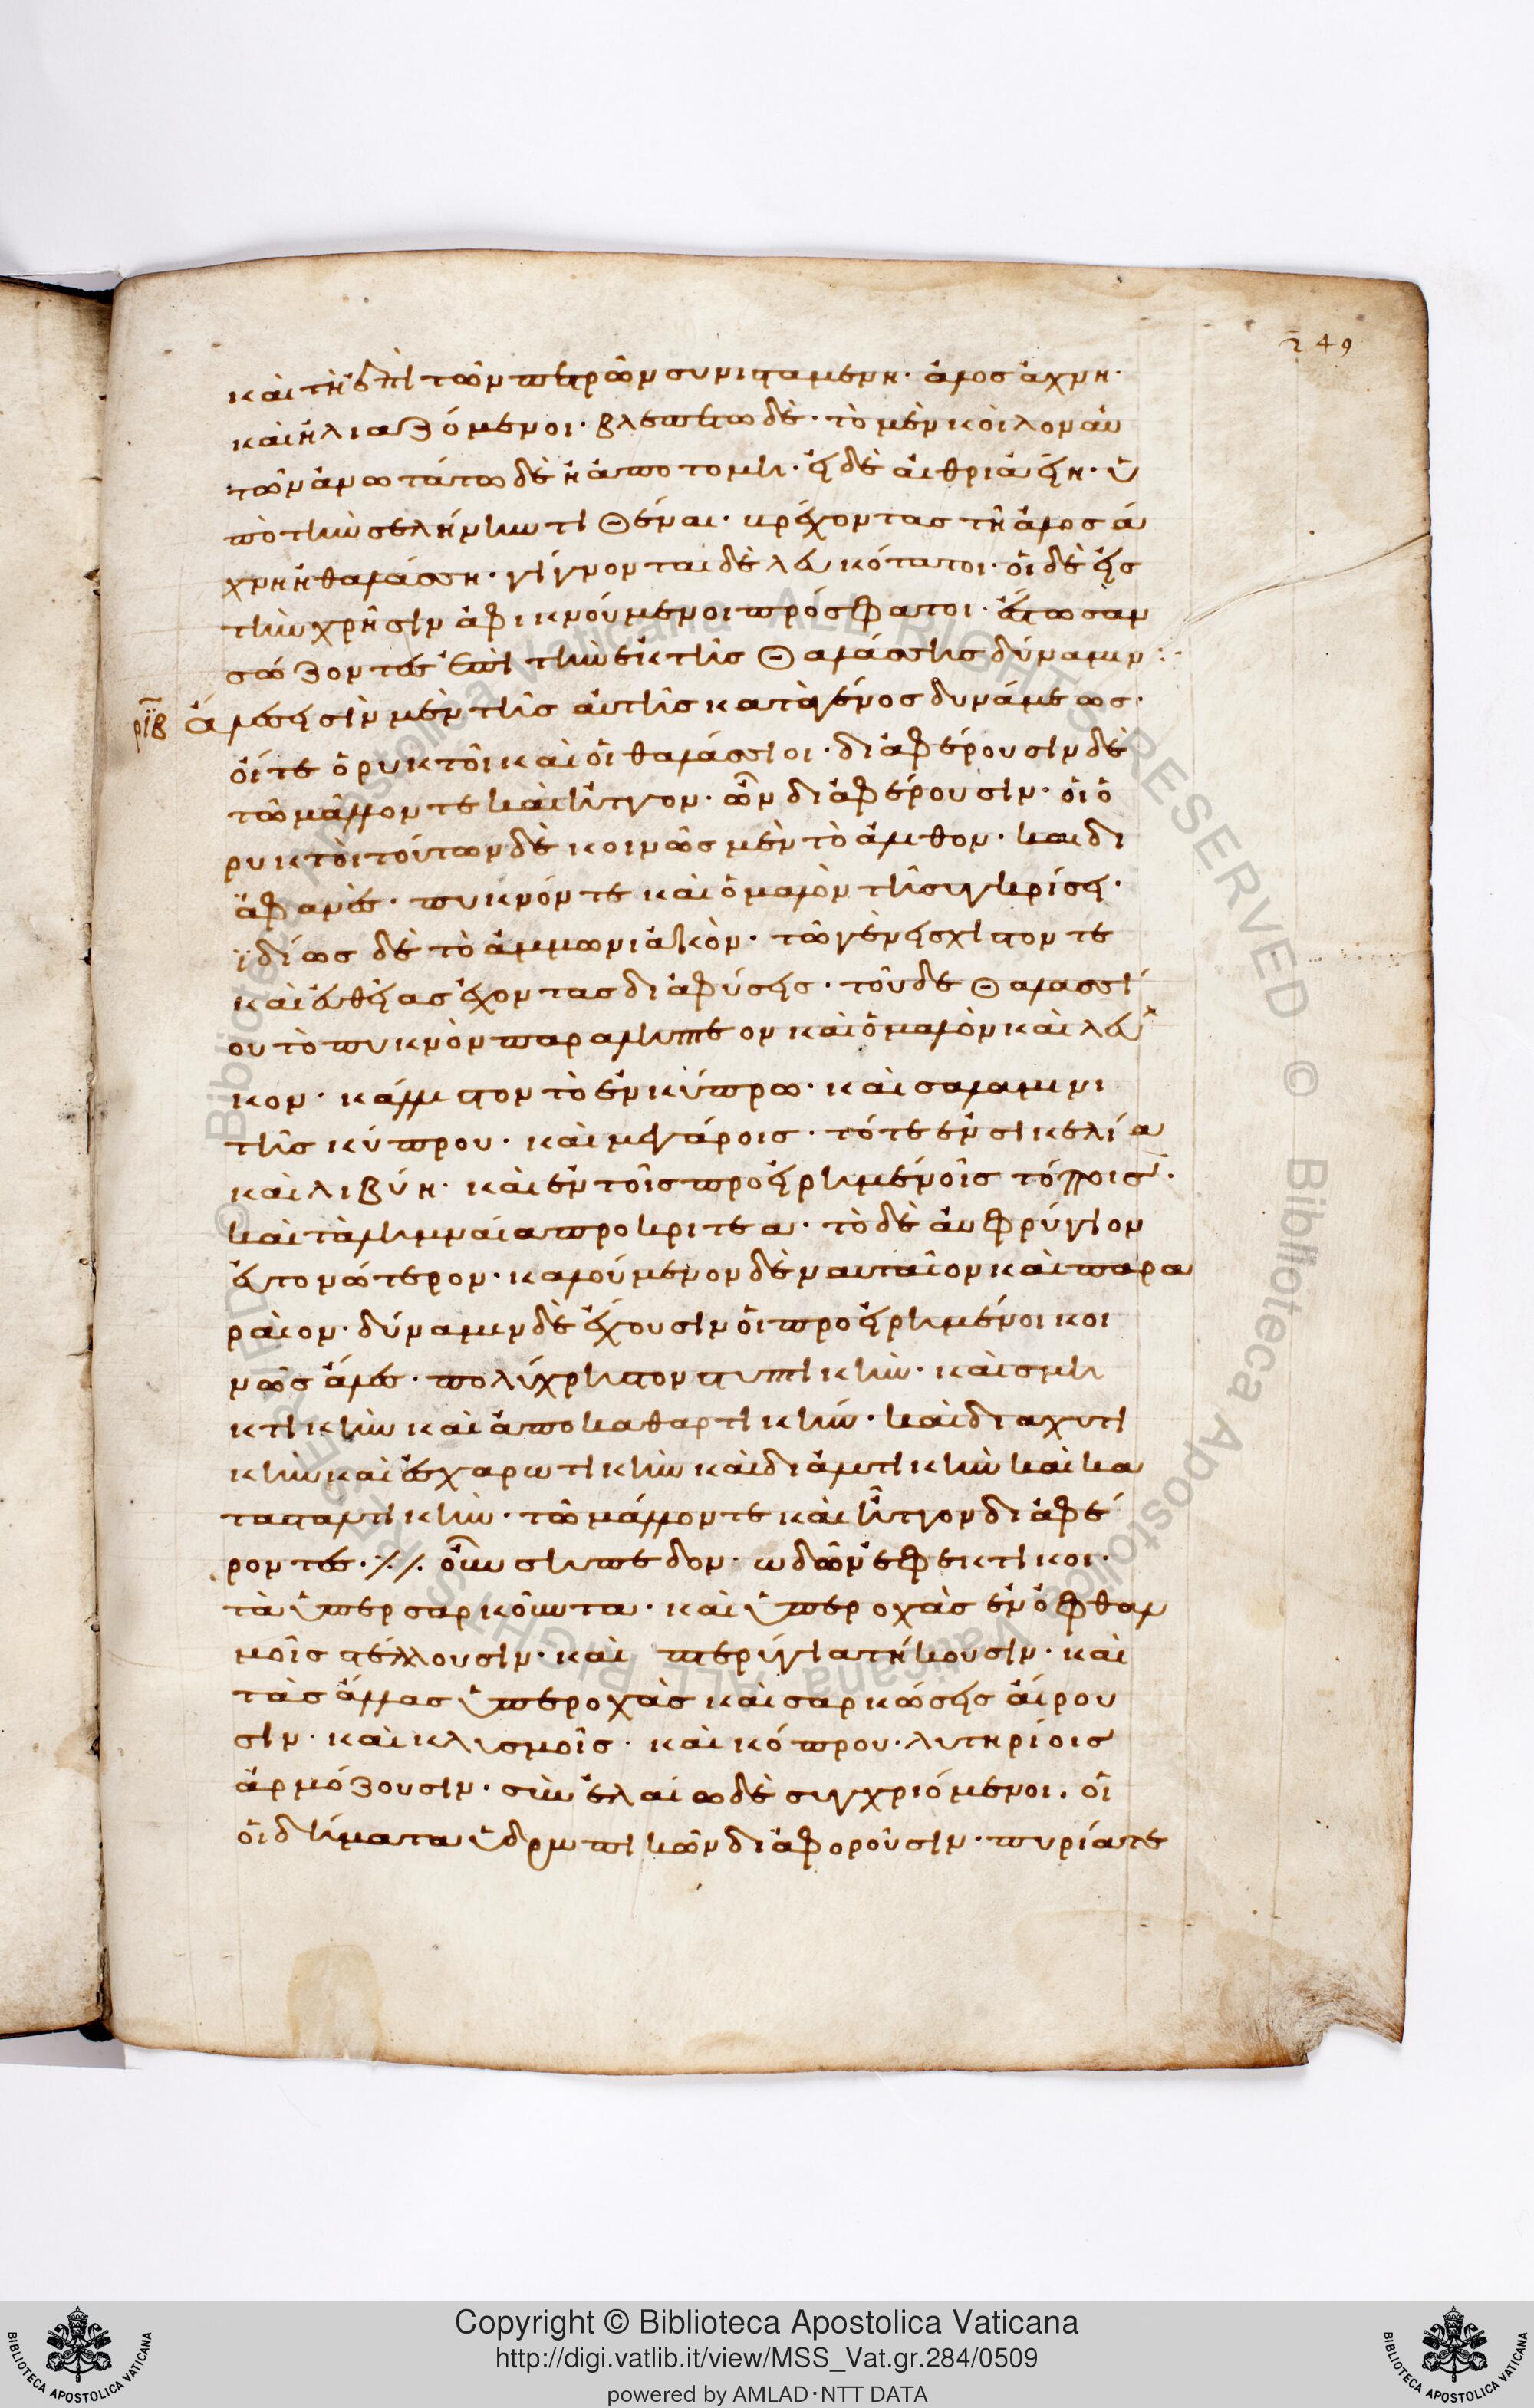 249
καὶ τῆ ἐπὶ τῶν πετρῶν συνισταμένη· ἁλὸς ἄχνη·
καὶ ἡλιαζόμενοι· βλεπέτω δὲ· τὸ μὲν κοῖλον αὐ
τῶν ἀνωτάτω δὲ ἡ ἀποτομή· εἰ δὲ αἰθρία εἴη· ὑ
πὸ τὴν σελήνην τιθέναι· βρέχοντας τῆ ἁλὸς ἄ
χνη ἢ θαλάσση· γίγνονται δὲ λευκότατοι· οἱ δὲ εἰς
τὴν χρῆσιν ἀφικνούμενοι πρόσφατοι ἔστωσαν
σώζοντες ἔτι τὴν ἐκ τῆς θαλάσσης δύναμιν :·
ριβ ἅλες εἰσὶν μὲν τῆς αὐτῆς κατὰ γένος δυνάμεως·
οἵ τε ὀρυκτοὶ καὶ οἱ θαλάσσιοι· διαφέρουσιν δὲ
τῶ μᾶλλον τε καὶ ἧττον· ὧν διαφέρουσιν· οἱ ὀ
ρυκτοὶ τούτων δὲ κοινῶς μὲν τὸ ἄλιθον· καὶ δι
αφανὲς· πυκνόν τε καὶ ὁμαλὸν τῆ συγκρίσει·
ἰδίως δὲ τὸ ἀμμωνιακὸν· τῶ γένει σχιστόν τε
καὶ εὐθείας ἔχον τὰς διαφύσεις· τοῦ δὲ θαλασσί
ου τὸ πυκνὸν παραληπτέον καὶ ὁμαλὸν καὶ λευ
κον· κάλλιστον τὸ ἐν κύπρω· καὶ σαλαμινι
τῆς κύπρου· καὶ μεγάροις· τό τε ἐν σικελία
καὶ λιβύη· καὶ ἐν τοῖς προειρημένοις τόποις·
καὶ τὰ λιμναῖα προκριτέα· τὸ δὲ αὖ φρύγιον
εὐτονώτερον· καλούμενον δὲ ναυταῖον καὶ παρα
ραιον· δύναμιν δὲ ἔχουσιν οἱ προειρημένοι κοι
νῶς ἅλες· πολύχρηστον στυπτικὴν· καὶ σμη
κτικὴν καὶ ἀποκαθαρτικὴν· καὶ διαχυτι
κὴν καὶ ἐσχαρωτικὴν καὶ διαλυτικὴν καὶ κα
τασταλτικὴν· τῶ μᾶλλον τε καὶ ἧττον διαφέ
ροντες·
τὰ ὑπερσαρκοῦντα· καὶ ὑπεροχὰς ἐν ὀφθαλ
μοῖς στέλλουσιν· καὶ πτερύγια τήκουσιν· καὶ
τὰς ἄλλας ὑπεροχὰς καὶ σαρκώσεις αἴρου
σιν· καὶ κλυσμοῖς· καὶ κόπρου· λυτηρίοις
ἁρμόζουσιν· σὺν ἐλαίω δὲ συγχριόμενοι· οἱ
οἰδήματα ὑδρωπικῶν διαφοροῦσιν· πυρία τε
Copyright © Biblioteca Apostolica Vaticana
http://digi.vatlib.it/view/MSS_Vat.gr.284/0509
powered by AMLAD·NTT DATA